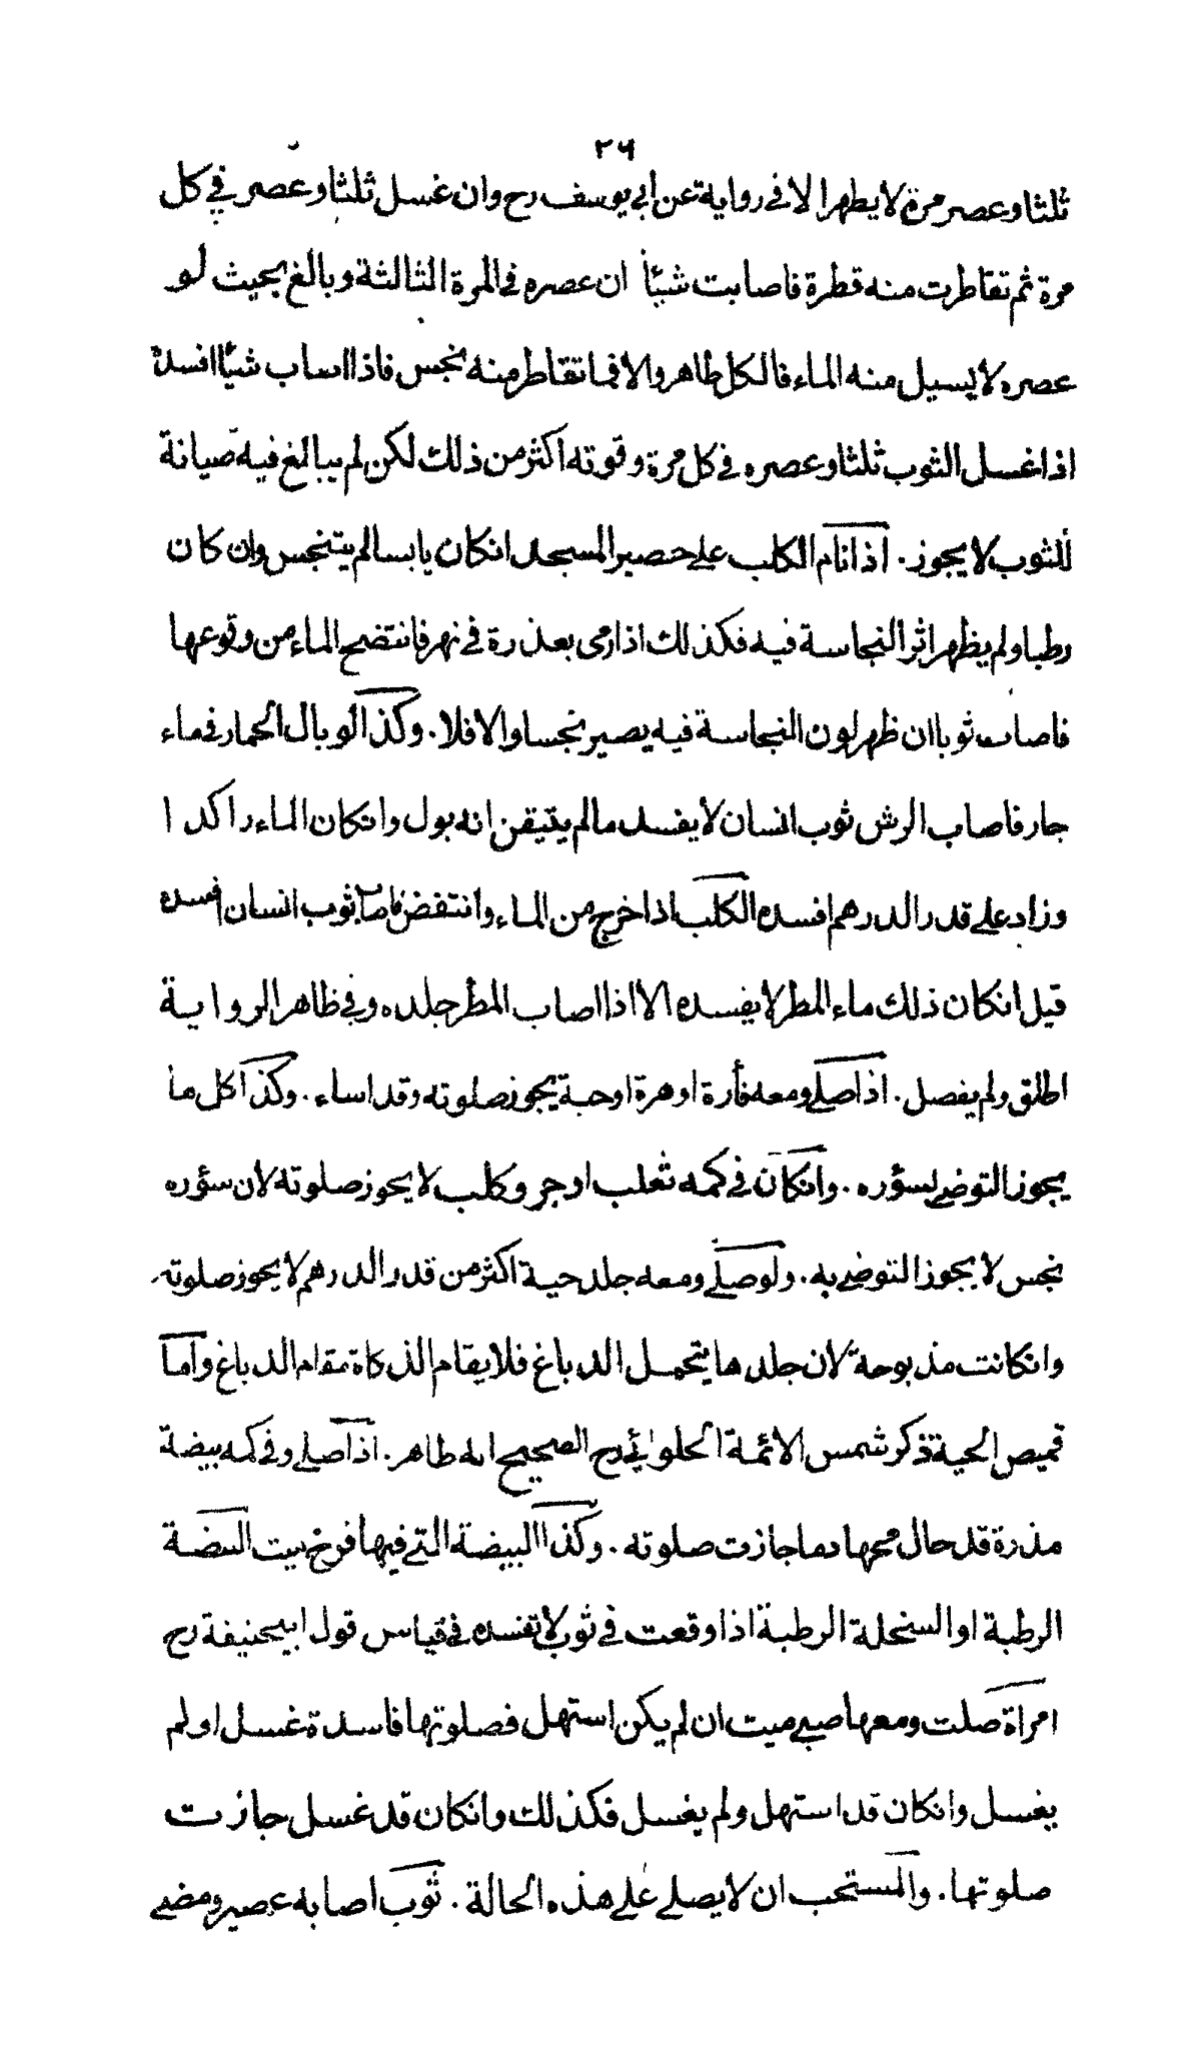 ٢٦
ثلثا وعصر مرة لا يطهر الا في رواية عن ابي يوسف رح وان غسل ثلثا وعصر في كل
مرة ثم تقاطرت منه قطرة فاصابت شيئا ان عصره في المرة الثالثة وبالغ بحيث لو
عصره لا يسيل منه الماء فالكل طاهر والا فما تقاطر منه نجس فاذا اصاب شيئا افسده
اذا غسل الثوب ثلثا وعصره في كل مرة وقوته اكثر من ذلك لكن لم يبالغ فيه صيانة
للثوب لا يجوز. اذا نام الكلب على حصير المسجد انكان يابسا لم يتنجس وان كان
رطبا ولم يظهر اثر النجاسة فيه فكذلك اذا رمى بعذرة في نهر فانتضح الماء من وقوعها
فاصاب ثوبا ان ظهر لون النجاسة فيه يصير نجسا والا فلا. وكذا لو بال الحمار في ماء
جار فاصاب الرش ثوب انسان لا يفسد ما لم يتيقن انه بول وانكان الماء راكدا
وزاد على قدر الدرهم افسده الكلب اذا خرج من الماء وانتفض فاصاب ثوب انسان افسده
قيل انكان ذلك ماء المطر لا يفسده الا اذا اصاب المطر جلده وفي ظاهر الرواية
اطلق ولم يفصل. اذا صلى ومعه فأرة او هرة او حية يجوز صلوته وقد اساء. وكذا كل ما
يجوز التوضى بسؤره. وانكان في كمه ثعلب او جرو كلب لا يجوز صلوته لان سؤره
نجس لا يجوز التوضى به. ولو صلى ومعه جلد حية اكثر من قدر الدرهم لا يجوز صلوته
وانكانت مذبوحة لان جلدها يتحمل الدباغ فلا يقام الذكاة مقام الدباغ واما
قميص الحية ذكر شمس الائمة الحلوائي رح الصحيح انه طاهر. اذا صلى وفي كمه بيضة
مذرة قد حال محها دما جازت صلوته. وكذا البيضة التي فيها فرخ ميت البيضة
الرطبة او السخلة الرطبة اذا وقعت في ثوب لا تفسده في قياس قول ابيحنيفة رح
امراة صلت ومعها صبي ميت ان لم يكن استهل فصلوتها فاسدة غسل او لم
يغسل وانكان قد استهل ولم يغسل فكذلك وانكان قد غسل جازت
صلوتها. والمستحب ان لا يصلي على هذه الحالة. ثوب اصابه عصير ومضى